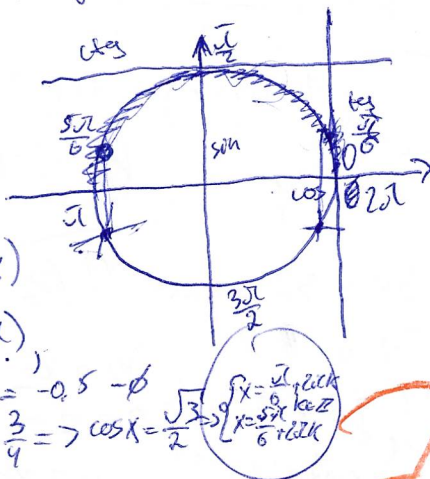 ctg
π/2
5π/6
sin
tg
π/6
0
cos
2π
π
3π/2
= -0,5 - ∅
3/4 => cos x = √3/2 => { x = π/6 + 2πk
x = 5π/6 + 2πk
k∈Z